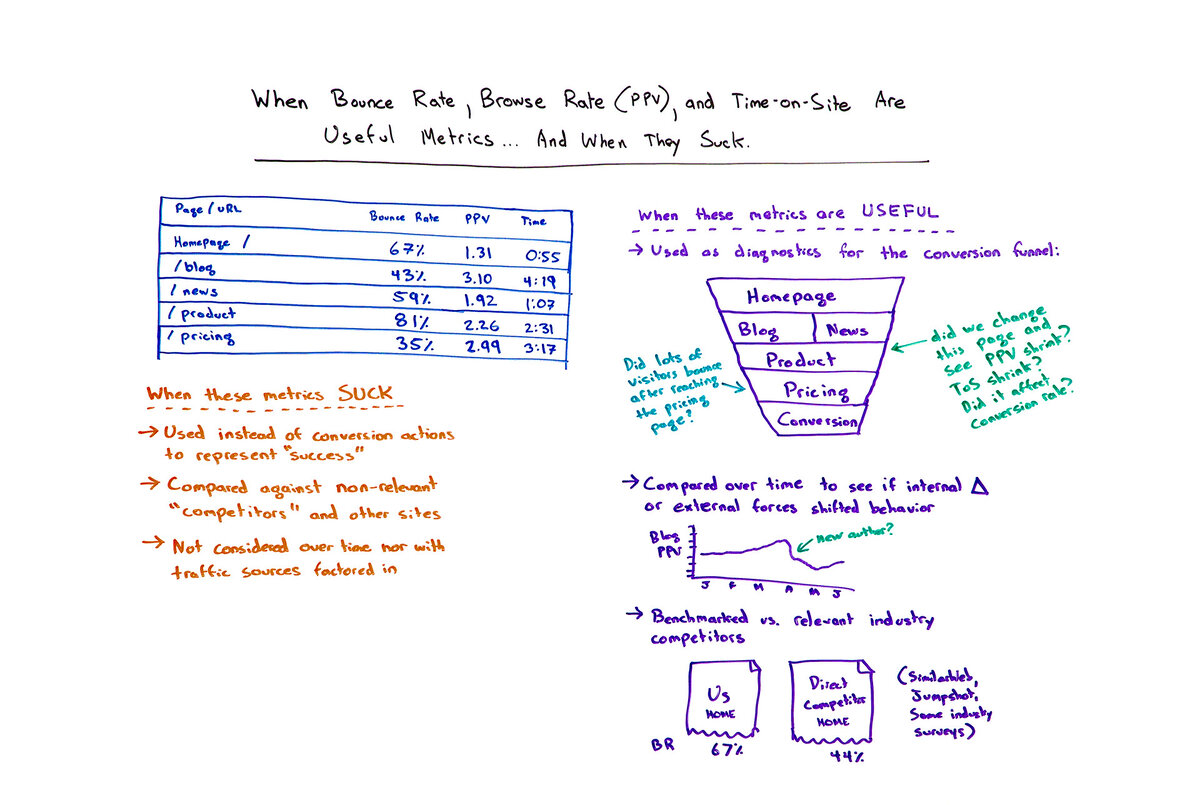 When Bounce Rate, Browse Rate (PPV), and Time-on-Site Are
Useful Metrics... And When They Suck.
Page / URL Bounce Rate PPV Time
Homepage / 67% 1.31 0:55
/blog 43% 3.10 4:19
/ news 59% 1.92 1:07
/ product 81% 2.26 2:31
/ pricing 35% 2.99 3:17
When these metrics SUCK
→ Used instead of conversion actions
to represent "success"
→ Compared against non-relevant
"competitors" and other sites
→ Not considered over time nor with
traffic sources factored in
When these metrics are USEFUL
→ Used as diagnostics for the conversion funnel:
Homepage
Blog News
Product
Pricing
Conversion
Did lots of
visitors bounce
after reaching
the pricing
page?
did we change
this page and
see PPV shrink?
ToS shrink?
Did it affect
conversion rate?
→ Compared over time to see if internal Δ
or external forces shifted behavior
Blog
PPV
new author?
J F M A M J
→ Benchmarked vs. relevant industry
competitors
Us
HOME
Direct
Competitor
HOME
(SimilarWeb,
Jumpshot,
Some industry
surveys)
BR 67% 44%